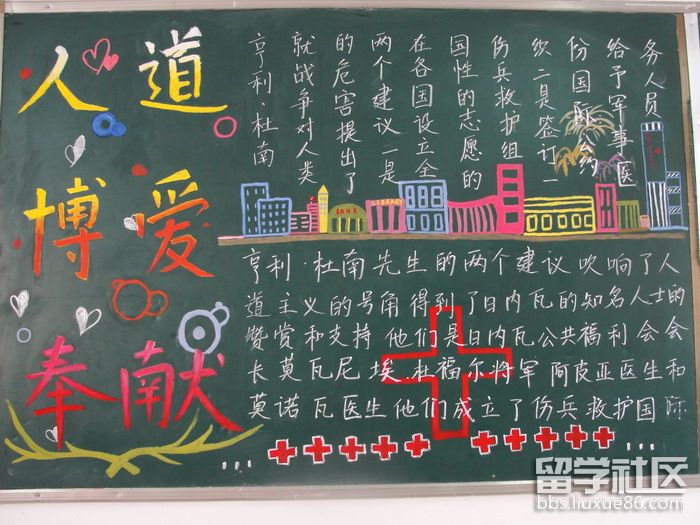 人道
博爱
奉献
亨利·杜南
就战争对人类
的危害提出了
两个建议一是
在各国设立全
国性的志愿的
伤兵救护组
织二是签订一
份国际公约
给予军事医
务人员
BANK
LIBRARY
亨利·杜南先生的两个建议吹响了人
道主义的号角得到了日内瓦的知名人士的
赞赏和支持 他们是日内瓦公共福利会会
长莫瓦尼埃杜福尔将军 阿皮亚医生和
莫诺瓦医生他们成立了伤兵救护国际
... ...
留学社区
bbs.liuxue86.com